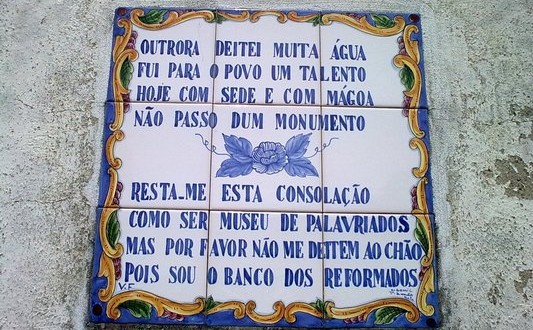 OUTRORA DEITEI MUITA ÁGUA
FUI PARA O POVO UM TALENTO
HOJE COM SEDE E COM MÁGOA
NÃO PASSO DUM MONUMENTO
RESTA-ME ESTA CONSOLAÇÃO
COMO SER MUSEU DE PALAVRIADOS
MAS POR FAVOR NÃO ME DEITEM AO CHÃO
POIS SOU O BANCO DOS REFORMADOS
V.F